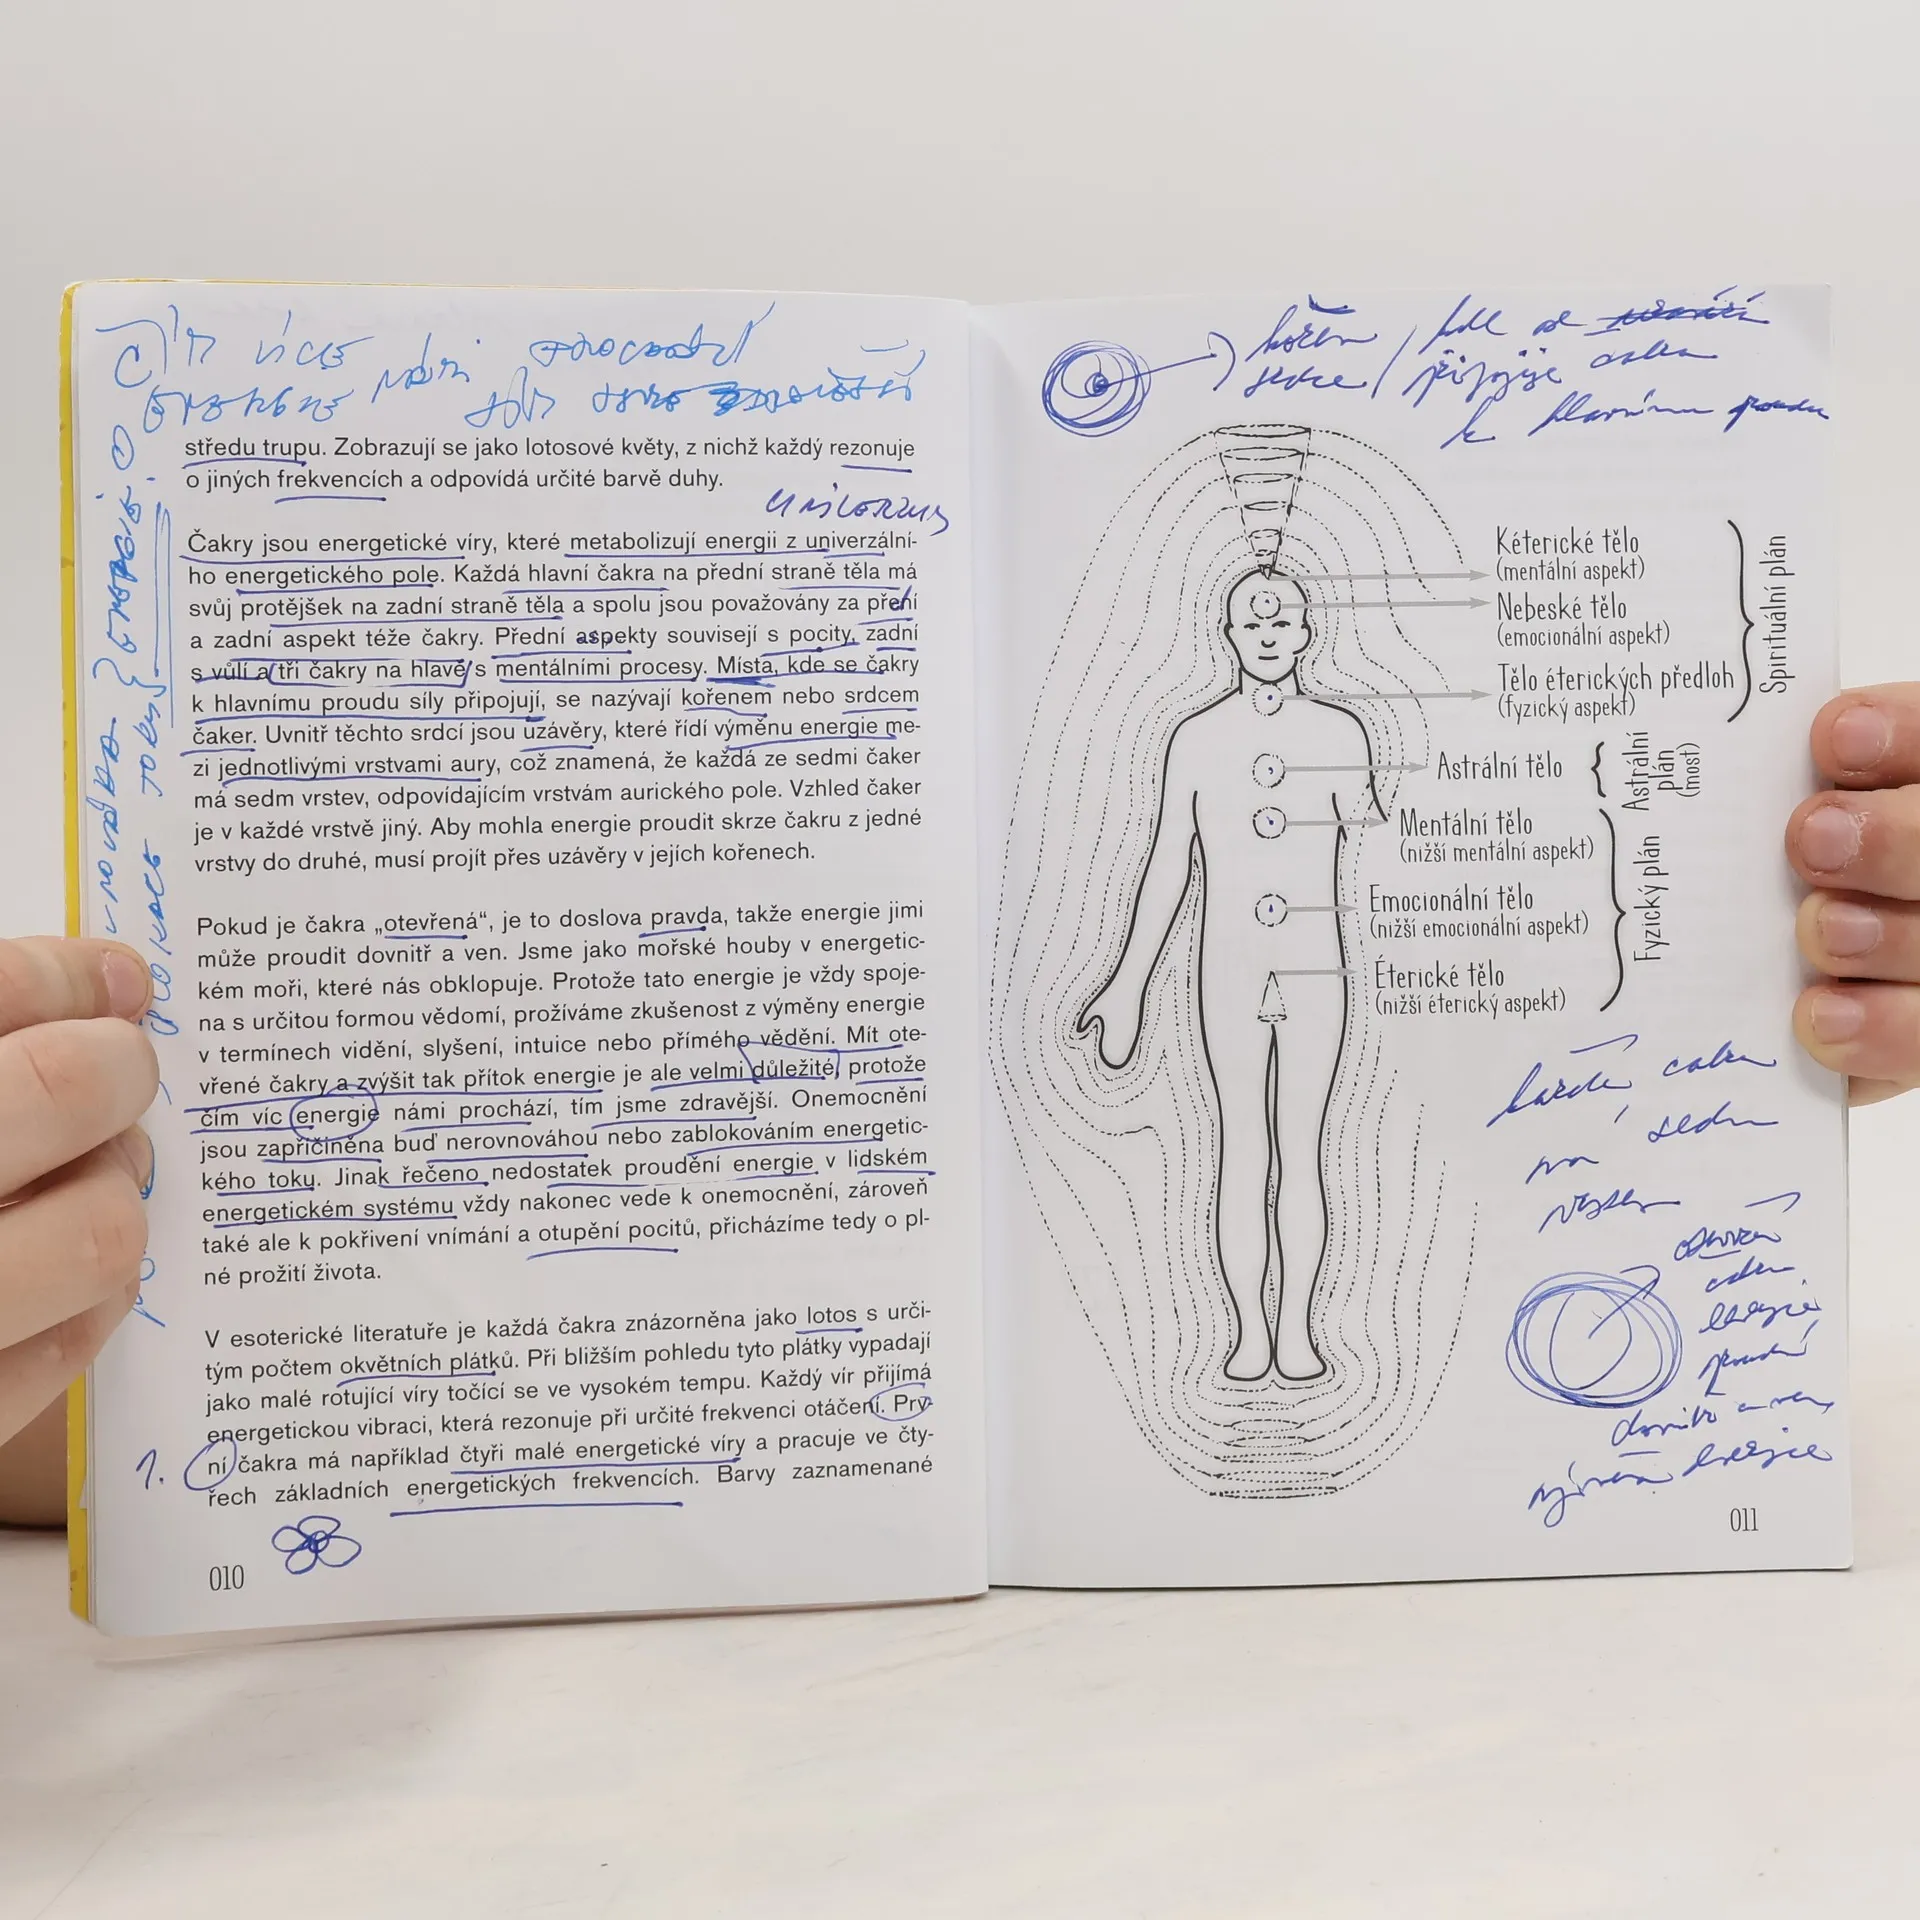 ČÍM VÍCE
NÁMI
středu trupu. Zobrazují se jako lotosové květy, z nichž každý rezonuje
o jiných frekvencích a odpovídá určité barvě duhy.
Čakry jsou energetické víry, které metabolizují energii z univerzální-
ho energetického pole. Každá hlavní čakra na přední straně těla má
svůj protějšek na zadní straně těla a spolu jsou považovány za pření
a zadní aspekt téže čakry. Přední aspekty souvisejí s pocity, zadní
s vůlí a tři čakry na hlavě s mentálními procesy. Místa, kde se čakry
k hlavnímu proudu síly připojují, se nazývají kořenem nebo srdcem
čaker. Uvnitř těchto srdcí jsou uzávěry, které řídí výměnu energie me-
zi jednotlivými vrstvami aury, což znamená, že každá ze sedmi čaker
má sedm vrstev, odpovídajícím vrstvám aurického pole. Vzhled čaker
je v každé vrstvě jiný. Aby mohla energie proudit skrze čakru z jedné
vrstvy do druhé, musí projít přes uzávěry v jejích kořenech.
Pokud je čakra „otevřená“, je to doslova pravda, takže energie jimi
může proudit dovnitř a ven. Jsme jako mořské houby v energetic-
kém moři, které nás obklopuje. Protože tato energie je vždy spoje-
na s určitou formou vědomí, prožíváme zkušenost z výměny energie
v termínech vidění, slyšení, intuice nebo přímého vědění. Mít ote-
vřené čakry a zvýšit tak přítok energie je ale velmi důležité, protože
čím víc energie námi prochází, tím jsme zdravější. Onemocnění
jsou zapříčiněna buď nerovnováhou nebo zablokováním energetic-
kého toku. Jinak řečeno nedostatek proudění energie v lidském
energetickém systému vždy nakonec vede k onemocnění, zároveň
také ale k pokřivení vnímání a otupění pocitů, přicházíme tedy o pl-
né prožití života.
V esoterické literatuře je každá čakra znázorněna jako lotos s urči-
tým počtem okvětních plátků. Při bližším pohledu tyto plátky vypadají
jako malé rotující víry točící se ve vysokém tempu. Každý vír přijímá
energetickou vibraci, která rezonuje při určité frekvenci otáčení. Prv-
1. ní čakra má například čtyři malé energetické víry a pracuje ve čty-
řech základních energetických frekvencích. Barvy zaznamenané
010
kořen / kde se
srdce / připojuje čakra
k hlavnímu proudu
Kéterické tělo
(mentální aspekt)
Nebeské tělo
(emocionální aspekt)
Tělo éterických předloh
(fyzický aspekt)
Spirituální plán
Astrální tělo
Astrální
plán
(most)
Mentální tělo
(nižší mentální aspekt)
Emocionální tělo
(nižší emocionální aspekt)
Éterické tělo
(nižší éterický aspekt)
Fyzický plán
každá čakra
má sedm
vrstev
čakra
energie
proudí
dovnitř a ven,
výměna energie
011